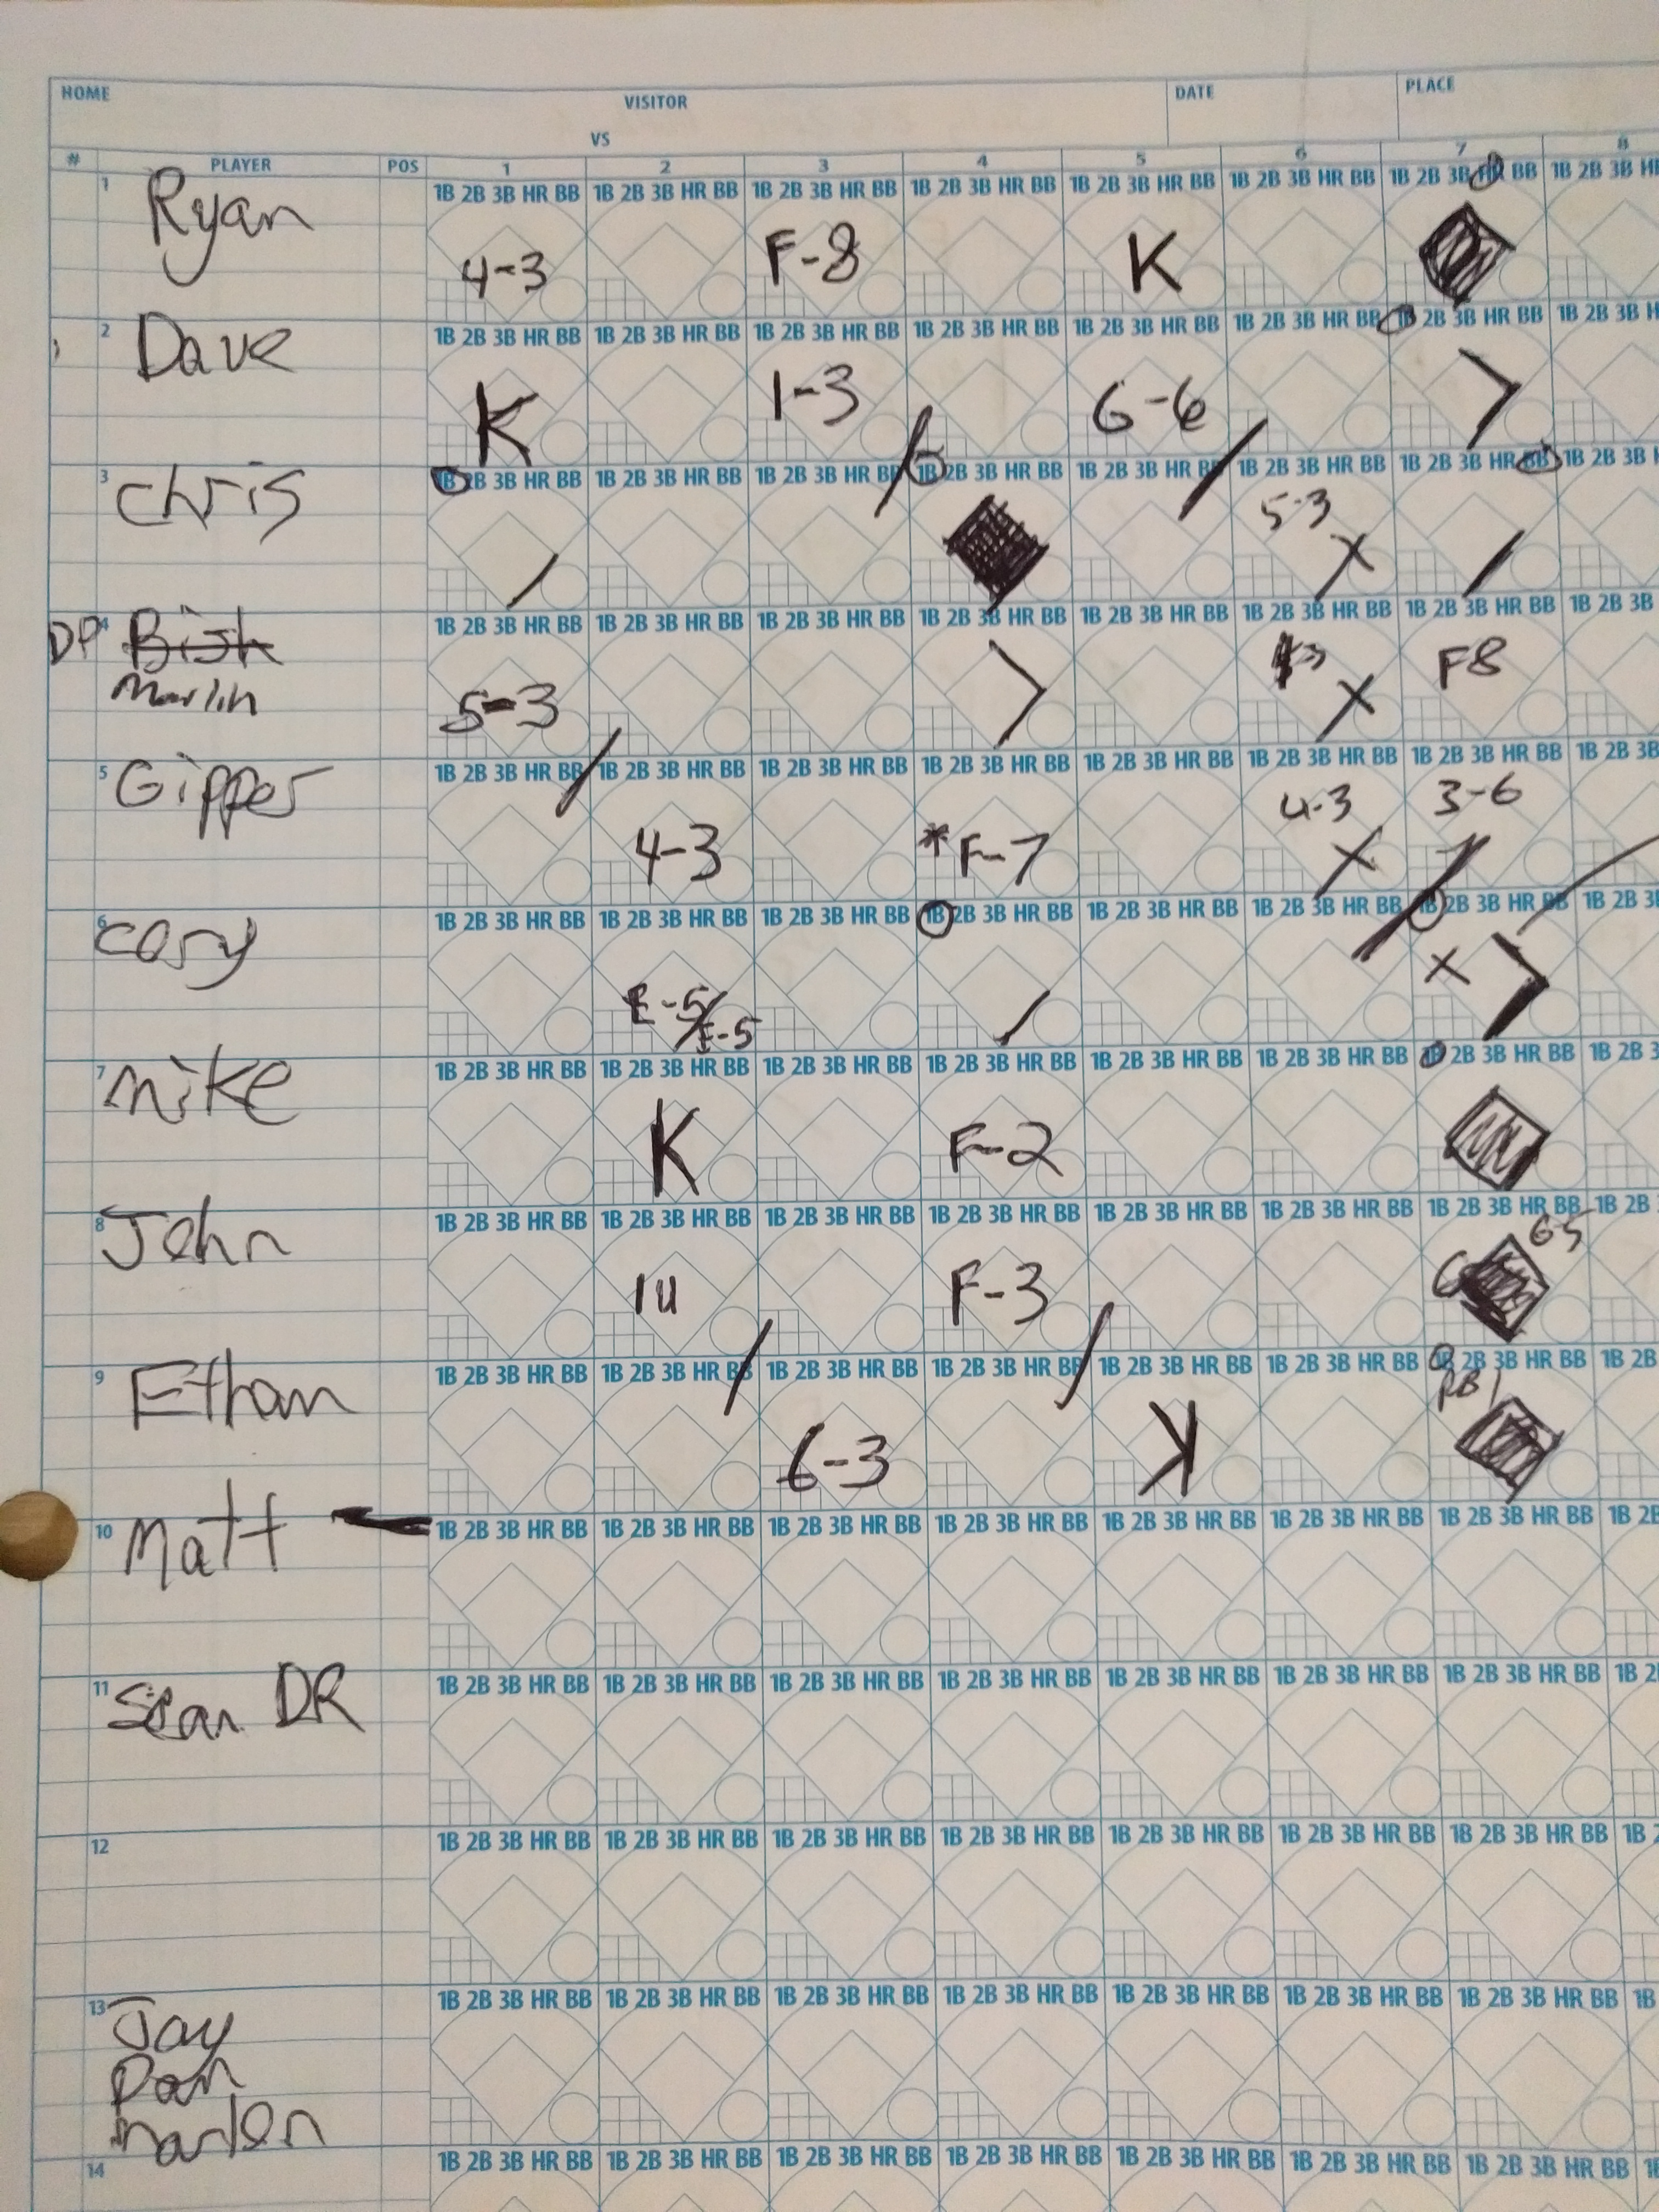 HOME VISITOR DATE PLACE
VS
# PLAYER POS 1 2 3 4 5 6 7 8
1B 2B 3B HR BB 1B 2B 3B HR BB 1B 2B 3B HR BB 1B 2B 3B HR BB 1B 2B 3B HR BB 1B 2B 3B HR BB 1B 2B 3B HR BB 1B 2B 3B H
1 Ryan 4-3 F-8 K
1B 2B 3B HR BB 1B 2B 3B HR BB 1B 2B 3B HR BB 1B 2B 3B HR BB 1B 2B 3B HR BB 1B 2B 3B HR BB 1B 2B 3B HR BB 1B 2B 3B H
2 Dave K 1-3 6-6
1B 2B 3B HR BB 1B 2B 3B HR BB 1B 2B 3B HR BB 1B 2B 3B HR BB 1B 2B 3B HR BB 1B 2B 3B HR BB 1B 2B 3B HR BB 1B 2B 3B H
3 Chris 5-3 X
1B 2B 3B HR BB 1B 2B 3B HR BB 1B 2B 3B HR BB 1B 2B 3B HR BB 1B 2B 3B HR BB 1B 2B 3B HR BB 1B 2B 3B HR BB 1B 2B 3B
DP 4 Bish
Marlin 5-3 X F8
1B 2B 3B HR BB 1B 2B 3B HR BB 1B 2B 3B HR BB 1B 2B 3B HR BB 1B 2B 3B HR BB 1B 2B 3B HR BB 1B 2B 3B HR BB 1B 2B 3B
5 Gipper 4-3 * F-7 4-3 X 3-6
1B 2B 3B HR BB 1B 2B 3B HR BB 1B 2B 3B HR BB 1B 2B 3B HR BB 1B 2B 3B HR BB 1B 2B 3B HR BB 1B 2B 3B HR BB 1B 2B 3B
6 Cory E-5/E-5 X
1B 2B 3B HR BB 1B 2B 3B HR BB 1B 2B 3B HR BB 1B 2B 3B HR BB 1B 2B 3B HR BB 1B 2B 3B HR BB 1B 2B 3B HR BB 1B 2B 3
7 Mike K F-2
1B 2B 3B HR BB 1B 2B 3B HR BB 1B 2B 3B HR BB 1B 2B 3B HR BB 1B 2B 3B HR BB 1B 2B 3B HR BB 1B 2B 3B HR BB 1B 2B
8 John 1u F-3 6-5
1B 2B 3B HR BB 1B 2B 3B HR BB 1B 2B 3B HR BB 1B 2B 3B HR BB 1B 2B 3B HR BB 1B 2B 3B HR BB 1B 2B 3B HR BB 1B 2B
9 Ethan 6-3 K RBI
1B 2B 3B HR BB 1B 2B 3B HR BB 1B 2B 3B HR BB 1B 2B 3B HR BB 1B 2B 3B HR BB 1B 2B 3B HR BB 1B 2B 3B HR BB 1B 2B
10 Matt
1B 2B 3B HR BB 1B 2B 3B HR BB 1B 2B 3B HR BB 1B 2B 3B HR BB 1B 2B 3B HR BB 1B 2B 3B HR BB 1B 2B 3B HR BB 1B 2
11 Sean DR
1B 2B 3B HR BB 1B 2B 3B HR BB 1B 2B 3B HR BB 1B 2B 3B HR BB 1B 2B 3B HR BB 1B 2B 3B HR BB 1B 2B 3B HR BB 1B 2
12
1B 2B 3B HR BB 1B 2B 3B HR BB 1B 2B 3B HR BB 1B 2B 3B HR BB 1B 2B 3B HR BB 1B 2B 3B HR BB 1B 2B 3B HR BB 1B
13 Jay
Dan
Marlen
1B 2B 3B HR BB 1B 2B 3B HR BB 1B 2B 3B HR BB 1B 2B 3B HR BB 1B 2B 3B HR BB 1B 2B 3B HR BB 1B 2B 3B HR BB 1B
14